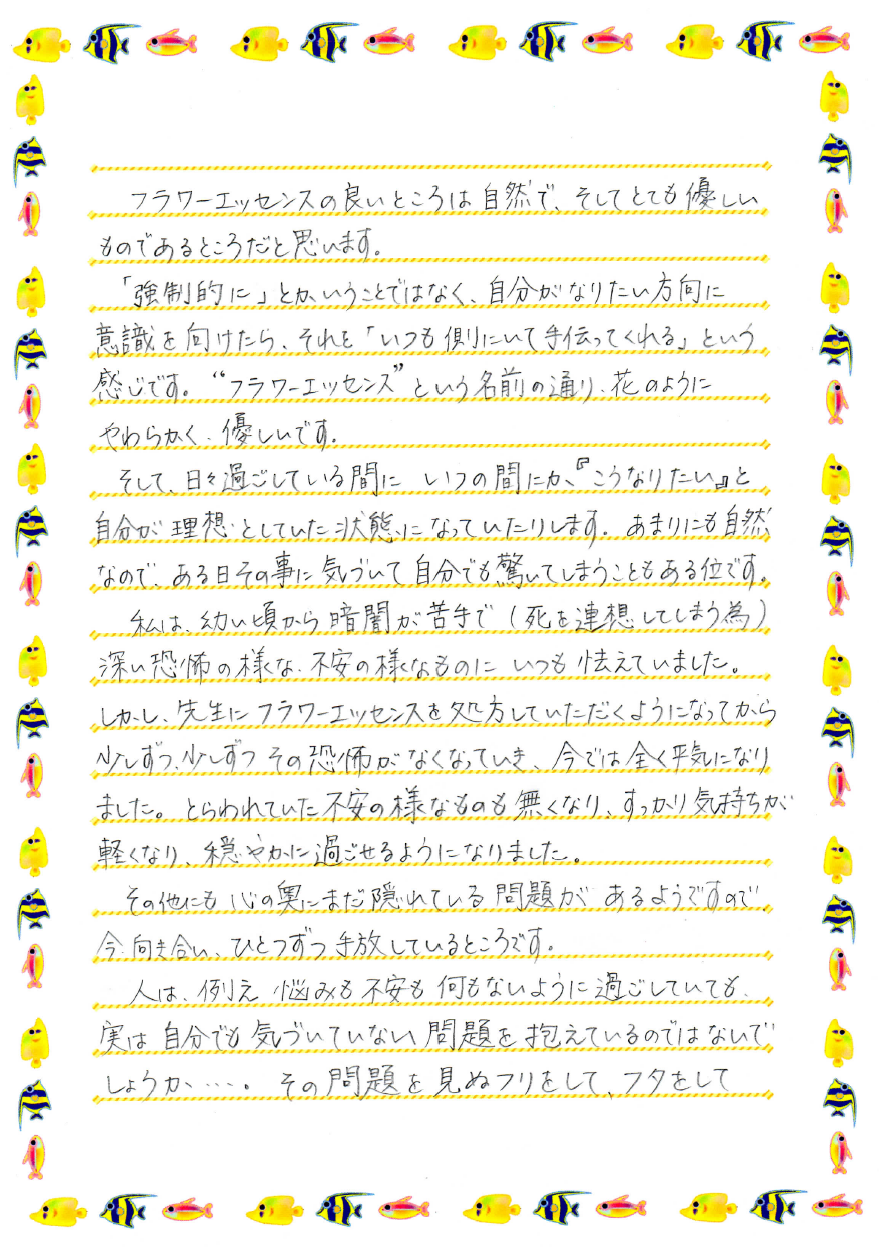 フラワーエッセンスの良いところは自然で、そしてとても優しい
ものであるところだと思います。
「強制的に」とかいうことではなく、自分がなりたい方向に
意識を向けたら、それを「いつも側にいて手伝ってくれる」という
感じです。“フラワーエッセンス”という名前の通り、花のように
やわらかく、優しいです。
そして、日々過ごしている間に いつの間にか、『こうなりたい』と
自分が理想としていた状態になっていたりします。あまりにも自然
なので、ある日その事に気づいて自分でも驚いてしまうこともある位です。
私は、幼い頃から暗闇が苦手で(死を連想してしまう為)
深い恐怖の様な、不安の様なものに いつも怯えていました。
しかし、先生にフラワーエッセンスを処方していただくようになってから
少しずつ、少しずつ その恐怖がなくなっていき、今では全く平気になり
ました。とらわれていた不安の様なものも無くなり、すっかり気持ちが
軽くなり、穏やかに過ごせるようになりました。
その他にも心の奥にまだ隠れている問題が あるようですので、
今、向き合い、ひとつずつ手放しているところです。
人は、例え 悩みも不安も何もないように過ごしていても、
実は自分でも気づいていない問題を抱えているのではないで
しょうか、…。その問題を見ぬフリをして、フタをして